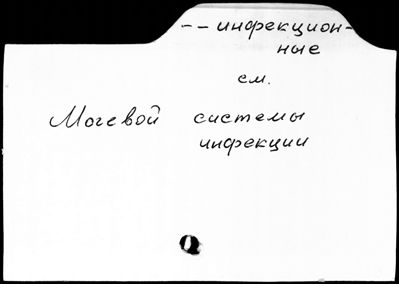 -- инфекцион-
ные
см.
Мочевой системы
инфекции